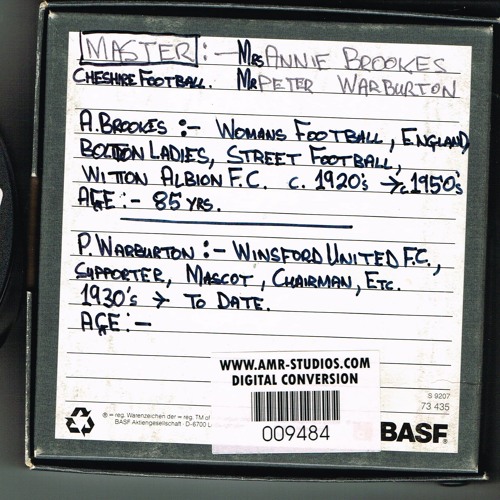 MASTER :- MRS ANNIE BROOKES
CHESHIRE FOOTBALL. MR PETER WARBURTON
A. BROOKES :- WOMANS FOOTBALL, ENGLAND,
BOLTON LADIES, STREET FOOTBALL,
WITTON ALBION F.C. C. 1920's → c.1950's
AGE :- 85 YRS.
P. WARBURTON :- WINSFORD UNITED F.C.,
SUPPORTER, MASCOT, CHAIRMAN, ETC.
1930's → TO DATE.
AGE :-
WWW.AMR-STUDIOS.COM
DIGITAL CONVERSION
009484
S 9207
73 435
® = reg. Warenzeichen der = reg. TM of
BASF Aktiengesellschaft · D-6700 L
BASF